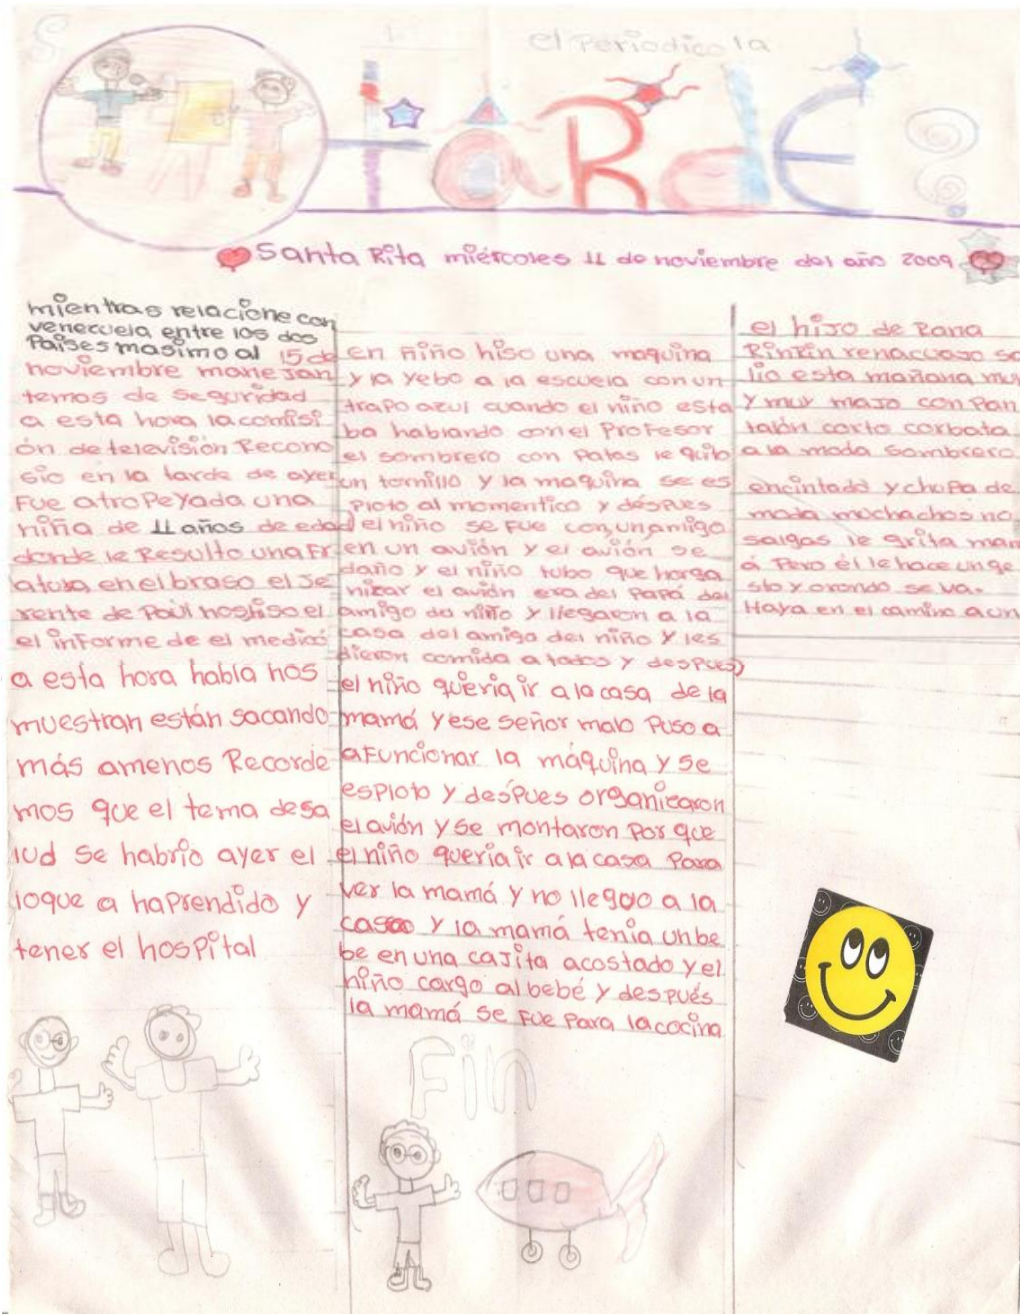 el Periodico la
tARdE
Santa Rita miércoles 11 de noviembre del año 2009
mientras relacione con
venecuela entre los dos
Paises masimo al 15 de
noviembre manejan
temos de seguridad
a esta hora la comisi
ón de televisión Recono
sio en la tarde de ayer
Fue atropeyada una
niña de 11 años de edad
donde le Resulto una Fr
atura en el braso el Je
rente de Paúl nos hiso el
el informe de el medico
a esta hora habla nos
muestran están sacando
más amenos Recorde
mos que el tema desa
lud se habrio ayer el
loque a haprendido y
tener el hospital
en niño hiso una maquina
y la yebo a la escuela con un
trapo azul cuando el niño esta
ba hablando con el Profesor
el sombrero con Patas le quito
un tornillo y la maquina se es
Ploto al momentico y déspues
el niño se Fue con un amigo
en un avión y el avión se
daño y el niño tubo que horga
nizar el avión era del Papá del
amigo da niño y llegaron a la
casa del amigo del niño y les
dieron comida a todos y después
el niño queria ir a la casa de la
mamá y ese señor malo Puso a
aFuncionar la máquina y se
esploto y désPues organicaron
el avión y se montaron Por que
el niño queria ir a la casa Para
ver la mamá y no llegao a la
casaa y la mamá tenía un be
be en una cajita acostado y el
niño cargo al bebé y después
la mamá se Fue Para la cocina
Fin
el hijo de Rana
RinRin renacuajo sa
lio esta mañana muy
y muy majo con Pan
talón corto corbata
a la moda sombrero
encintado y chupa de
moda muchachos no
salgas le grita mam
á Pero él le hace un ge
sto y orondo se va.
Haya en el camino a un